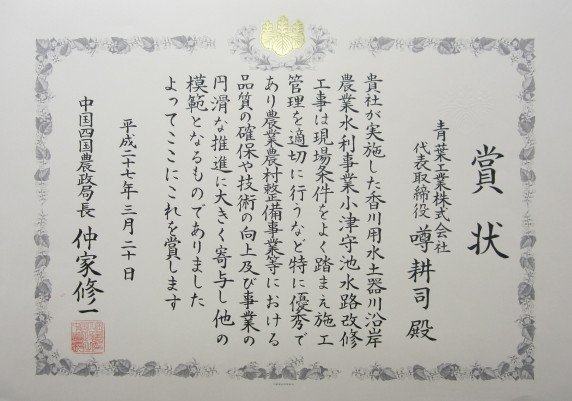 賞状
青葉工業株式会社
代表取締役 噂 耕司 殿
貴社が実施した香川用水土器川沿岸
農業水利事業小津守池水路改修
工事は現場条件をよく踏まえ施工
管理を適切に行うなど特に優秀で
あり農業農村整備事業等における
品質の確保や技術の向上及び事業の
円滑な推進に大きく寄与し他の
模範となるものでありました
よってここにこれを賞します
平成二十七年三月二十日
中国四国農政局長 仲家修一